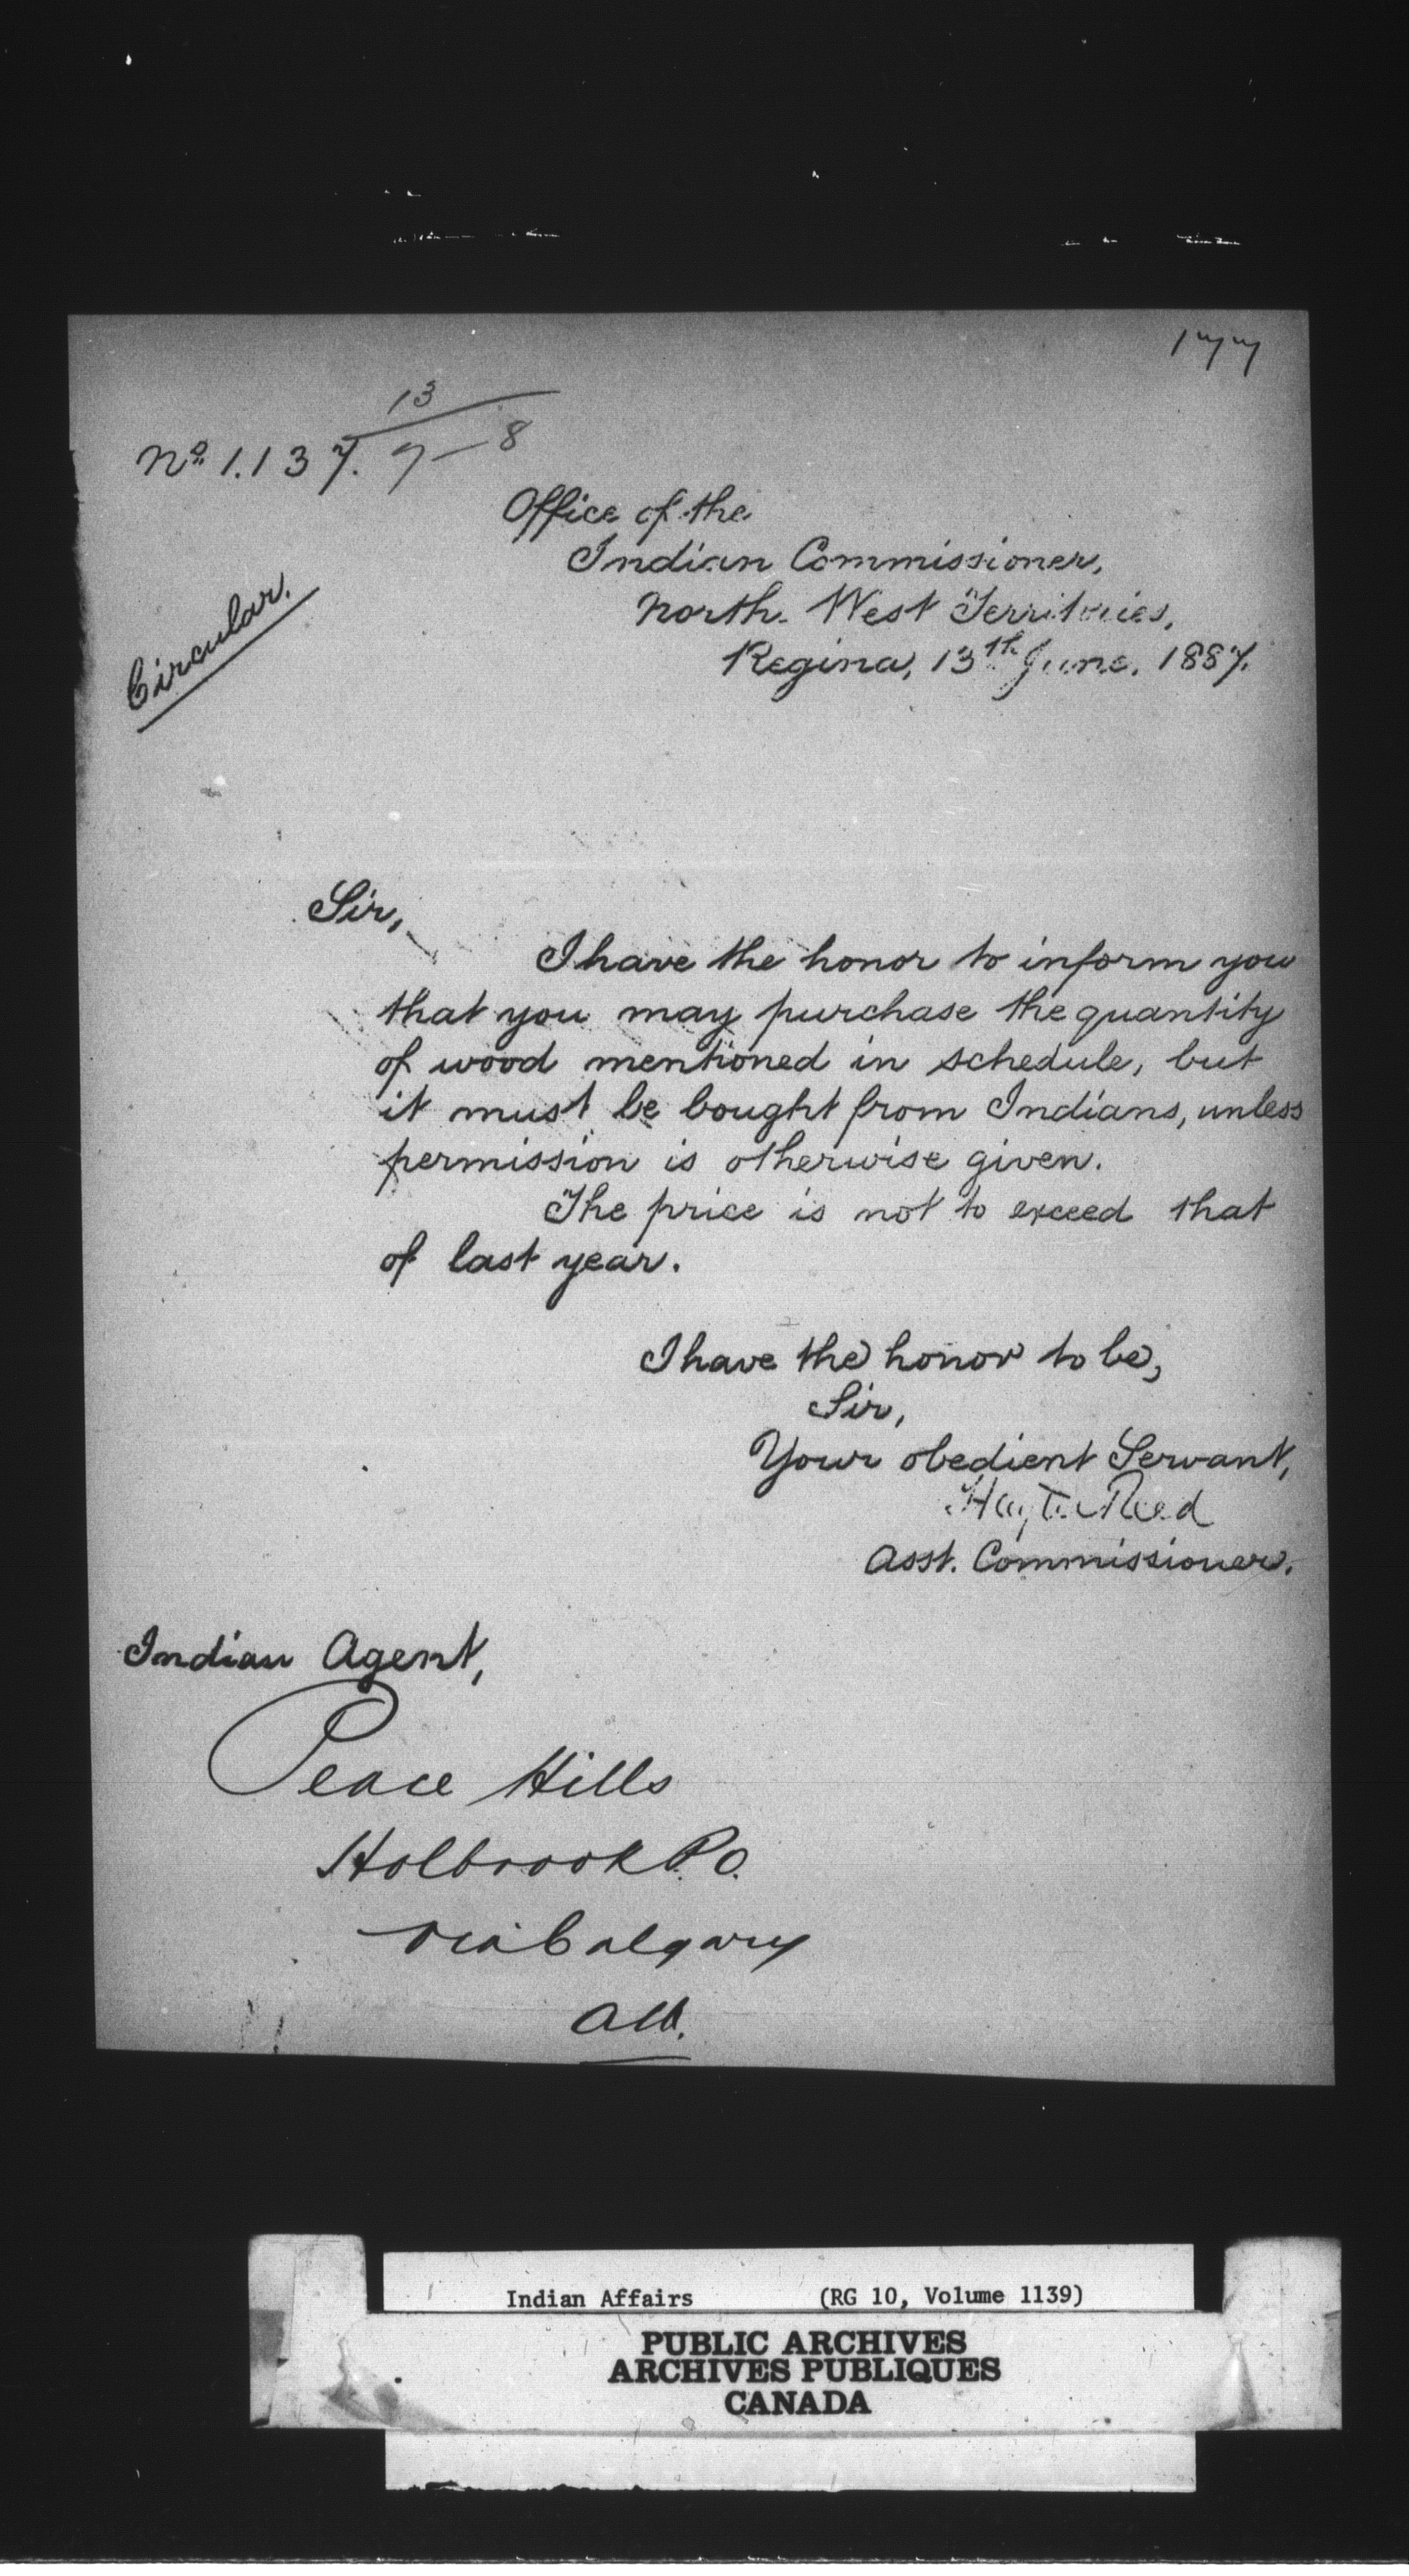 177
13
No. 1.137. 7-8
Office of the
Indian Commissioner,
North West Territories,
Regina, 13th June, 1887.
Circular.
Sir,
I have the honor to inform you
that you may purchase the quantity
of wood mentioned in schedule, but
it must be bought from Indians, unless
permission is otherwise given.
The price is not to exceed that
of last year.
I have the honor to be,
Sir,
Your obedient Servant,
Hayter Reed
Asst. Commissioner.
Indian Agent,
Peace Hills
Holbrook P.O.
via Calgary
Alb.
Indian Affairs (RG 10, Volume 1139)
PUBLIC ARCHIVES
ARCHIVES PUBLIQUES
CANADA